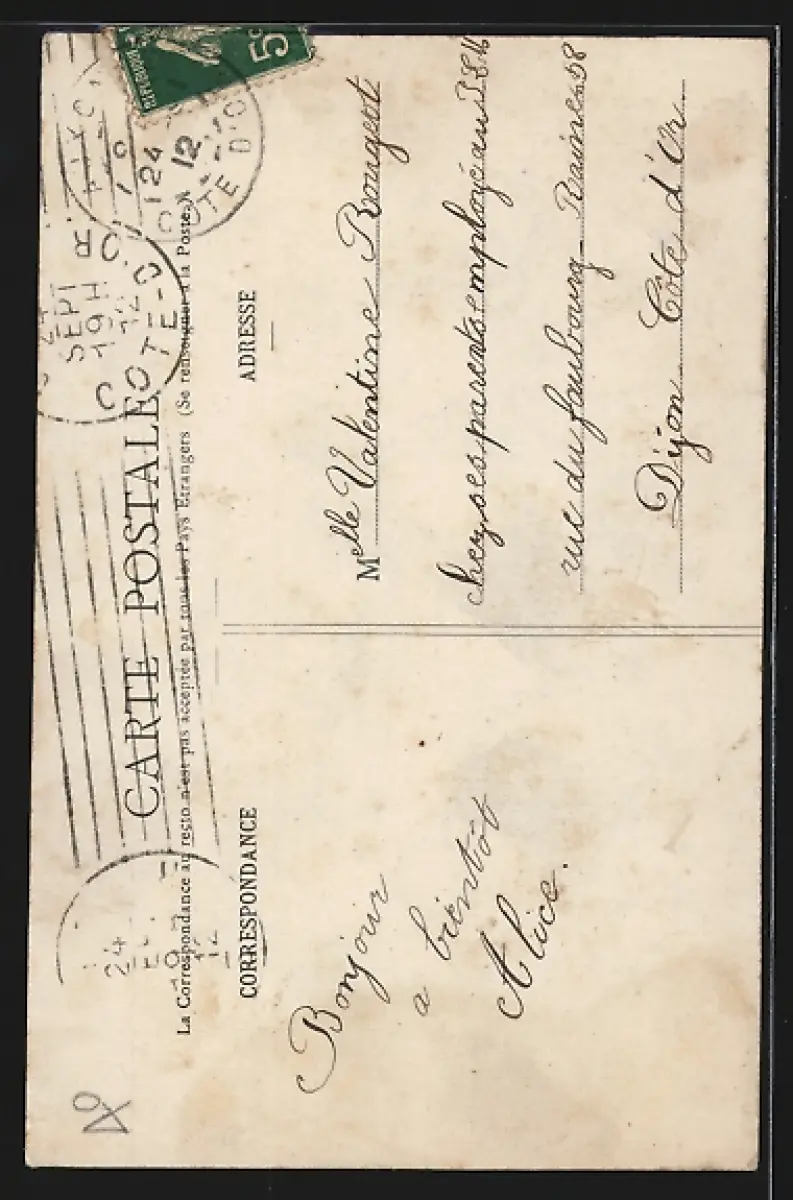 CARTE POSTALE
La Correspondance au recto n'est pas acceptée par tous les Pays Etrangers (Se renseigner à la Poste)
CORRESPONDANCE
Bonjour
a bientôt
Alice.
ADRESSE
Melle Valentine Rouget
chez ses parents employé au
rue du faubourg Raines 58
Dijon Côte d'Or
5c
24
SEPT
19H
12
COTE-D'O
24
12
COTE D'O
24
12